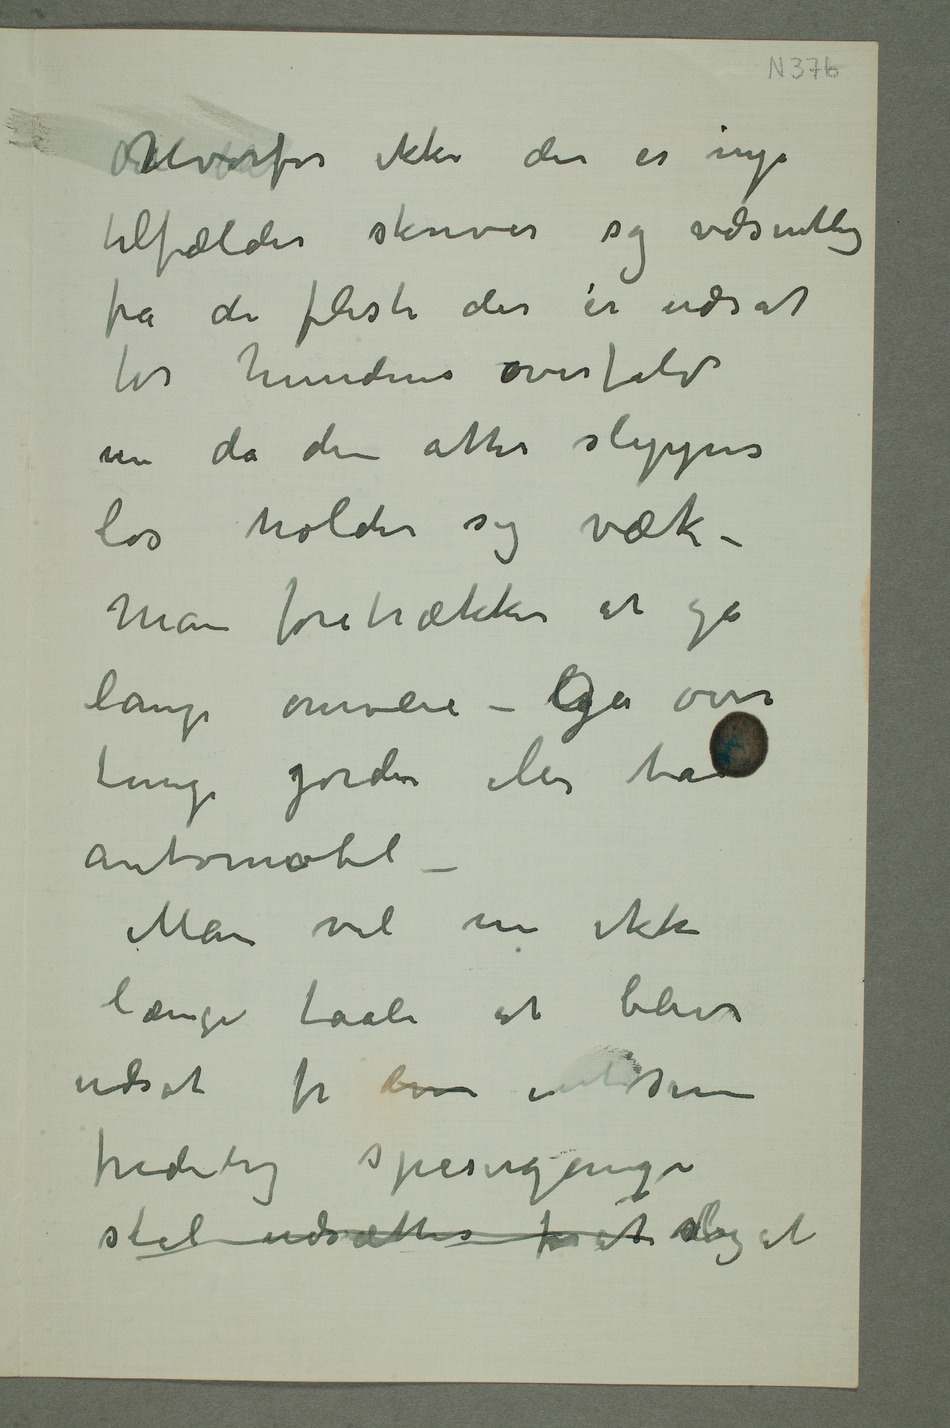 N 376
Hvorfor ikke der er nye
tilfælder skriver sig væsentlig
fra de fleste der er udsat
for hundens overfald
nu da den atter slippes
løs holder sig væk –
Man foretrækker at gå
lange omveie – gå over
tunge jorder eller ta
automobil –
Man vil nu ikke
længe taale at blive
udsat fr som
fredelig spasergænger
skal udsættes for at at